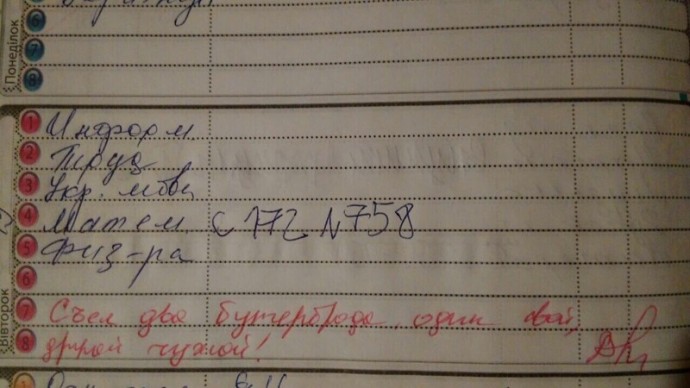 Понеділок
6
7
8
1 Информ
2 Труд
3 Укр. мова
4 Матем с 172 N758
5 Физ-ра
6
7 Съел два бутерброда, один свой,
8 другой чужой!
Вівторок